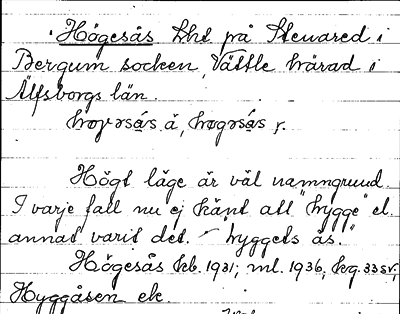 Högesås lht på Stenared i
Bergum socken, Vättle härad i
Älfsborgs län.
hογrsås å, hogrsås r.
Högt läge är väl namngrund.
I varje fall nu ej känt att "hygge" el.
annat varit det. – "hyggets ås."
Högesås kb. 1931; ml. 1936, kg. 33 sv,
Hyggåsen ek.